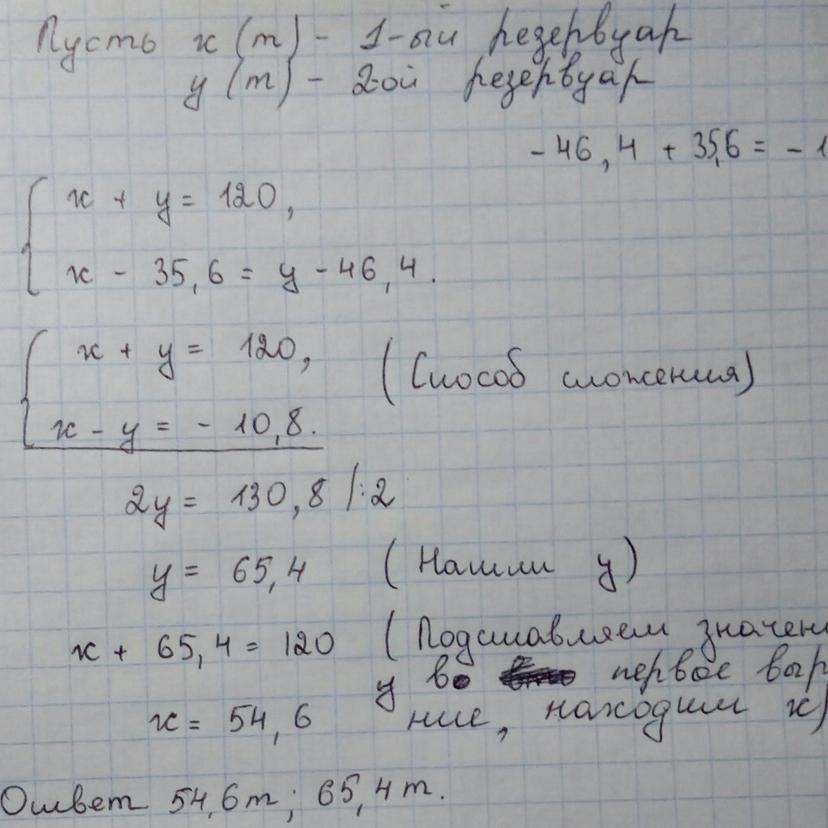 Пусть x (т) - 1-ый резервуар
y (т) - 2-ой резервуар
- 46,4 + 35,6 = - 1
x + y = 120,
x - 35,6 = y - 46,4.
x + y = 120, (Способ сложения)
x - y = - 10,8.
2y = 130,8 |:2
y = 65,4 (Нашли y)
x + 65,4 = 120 (Подставляем значен
y во первое выр
x = 54,6 ние, находим x)
Ответ 54,6т; 65,4т.